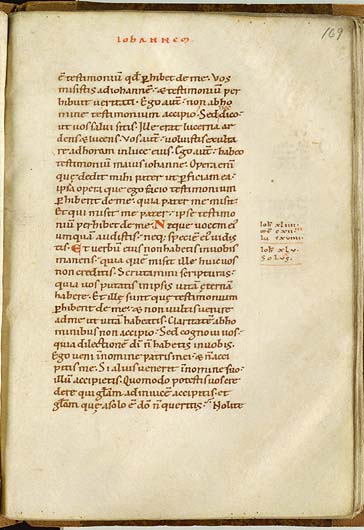 IOHANNEM
169
ē testimoniū qđ phibet de me. Vos
misistis ad iohannē & testimoniū per
hibuit veritati. Ego aut̄ non ab ho
mine testimonium accipio. Sed dico
ut vos salui sitis. Ille erat lucerna ar
dens & lucens. Vos aut̄ voluistis exulta
re ad horam in luce eius. Ego aut̄ habeo
testimoniū maius iohanne. Opera enī
que dedit mihi pater ut pficiam ea.
ipsa opera que ego facio testimonium
phibent de me. quia pater me misit.
Et qui misit me pater. ipse testimo
niū perhibet de me. Neque vocem ei'
umquā audistis. neq; speciē ei' vidis
tis. Et verbū eius non habetis in vobis
manens. quia quē misit ille huic vos
non creditis. Scrutamini scripturas.
quia vos putatis in ipsis vitā eternā
habere. Et ille sunt que testimonium
phibent de me. & non vultis venire
ad me ut vitā habeatis. Claritatē ab ho
minibus non accipio. Sed cognoui vos.
quia dilectionē dī n̄ habetis in vobis.
Ego veni in nomine patris mei. & n̄ acci
pitis me. Si alius venerit in nomine suo.
illū accipietis. Quomodo potestis vos cre
dere qui gl̄am ad inuicē accipitis. et
gl̄am que a solo ē dō n̄ queritis. Nolite
Ioh xliiii
Ioh xlv
Solus